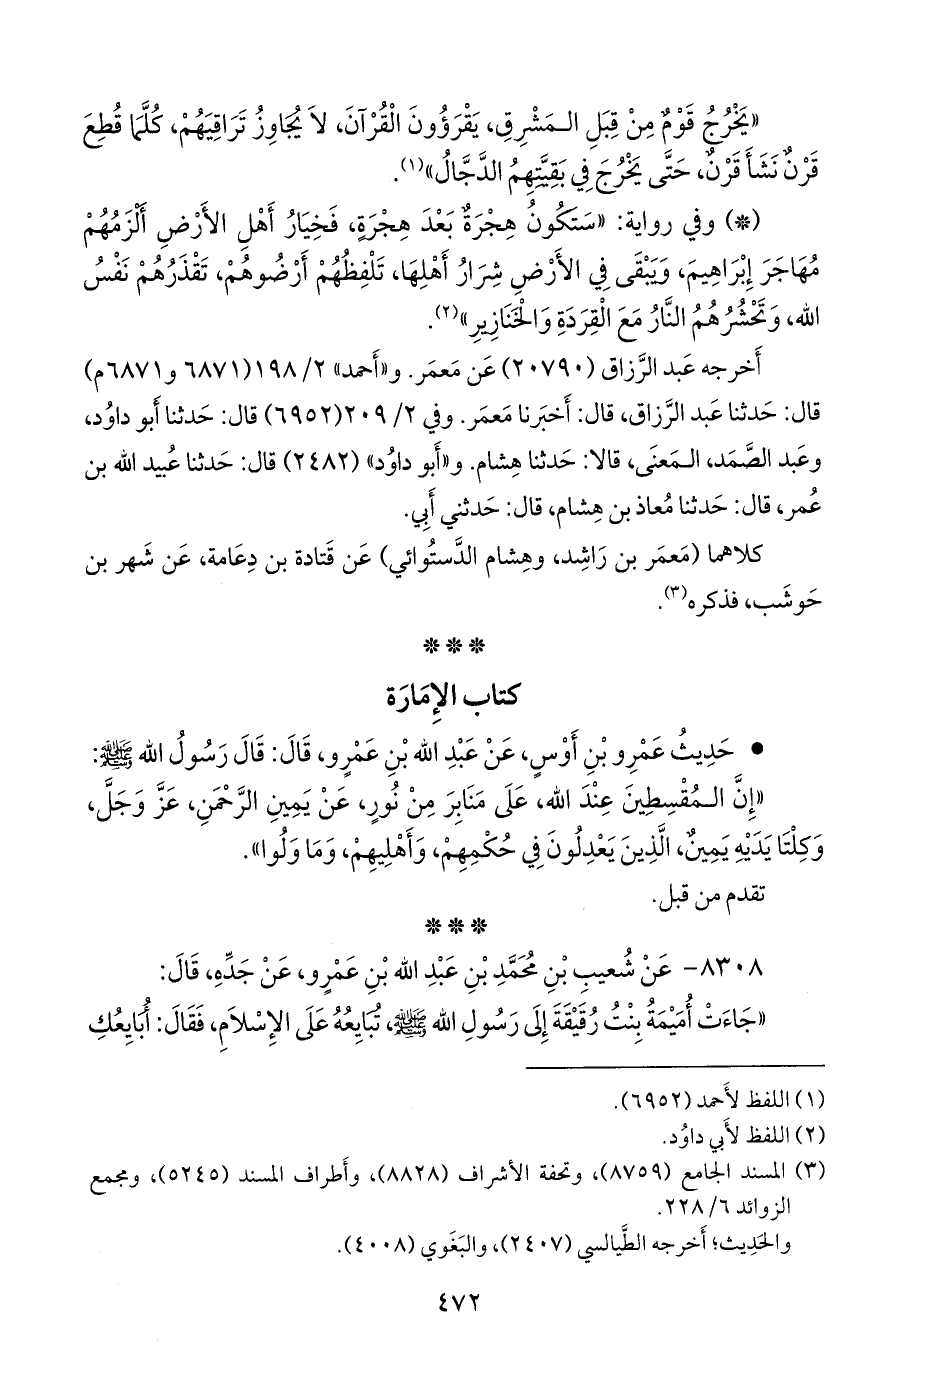 «يَخْرُجُ قَوْمٌ مِنْ قِبَلِ الـمَشْرِقِ، يَقْرَؤُونَ الْقُرْآنَ، لاَ يُجَاوِزُ تَرَاقِيَهُمْ، كُلَّمَا قُطِعَ
قَرْنٌ نَشَأَ قَرْنٌ، حَتَّى يَخْرُجَ فِي بَقِيَّتِهِمُ الدَّجَّالُ»(١).
(*) وفي رواية: «سَتَكُونُ هِجْرَةٌ بَعْدَ هِجْرَةٍ، فَخِيَارُ أَهْلِ الأَرْضِ أَلْزَمُهُمْ
مُهَاجَرَ إِبْرَاهِيمَ، وَيَبْقَى فِي الأَرْضِ شِرَارُ أَهْلِهَا، تَلْفِظُهُمْ أَرْضُوهُمْ، تَقْذَرُهُمْ نَفْسُ
الله، وَتَحْشُرُهُمُ النَّارُ مَعَ الْقِرَدَةِ وَالْخَنَازِيرِ»(٢).
أَخرجه عَبد الرَّزاق (٢٠٧٩٠) عَن مَعمَر. و«أَحمد» ٢/ ١٩٨(٦٨٧١ و٦٨٧١م)
قال: حَدثنا عَبد الرَّزاق، قال: أَخبَرنا مَعمَر. وفي ٢/ ٢٠٩(٦٩٥٢) قال: حَدثنا أَبو داوُد،
وعَبد الصَّمَد، الـمَعنَى، قالا: حَدثنا هِشام. و«أَبو داوُد» (٢٤٨٢) قال: حَدثنا عُبيد الله بن
عُمر، قال: حَدثنا مُعاذ بن هِشام، قال: حَدثني أَبي.
كلاهما (مَعمَر بن رَاشِد، وهِشام الدَّستُوائي) عَن قَتادة بن دِعَامة، عَن شَهر بن
حَوشَب، فذكره(٣).
* * *
كتاب الإِمَارَة
• حَدِيثُ عَمْرِو بْنِ أَوْسٍ، عَنْ عَبْدِ الله بْنِ عَمْرٍو، قَالَ: قَالَ رَسُولُ الله ﷺ:
«إِنَّ الـمُقْسِطِينَ عِنْدَ الله، عَلَى مَنَابِرَ مِنْ نُورٍ، عَنْ يَمِينِ الرَّحْمَنِ، عَزَّ وَجَلَّ،
وَكِلْتَا يَدَيْهِ يَمِينٌ، الَّذِينَ يَعْدِلُونَ فِي حُكْمِهِمْ، وَأَهْلِيهِمْ، وَمَا وَلُوا».
تقدم من قبل.
* * *
٨٣٠٨- عَنْ شُعيبِ بْنِ مُحَمَّدِ بْنِ عَبْدِ الله بْنِ عَمْرٍو، عَنْ جَدِّهِ، قَالَ:
«جَاءَتْ أُمَيْمَةُ بِنْتُ رُقَيْقَةَ إِلَى رَسُولِ الله ﷺ، تُبَايِعُهُ عَلَى الإِسْلاَمِ، فَقَالَ: أُبَايِعُكِ
(١) اللفظ لأَحمد (٦٩٥٢).
(٢) اللفظ لأَبي داوُد.
(٣) المسند الجامع (٨٧٥٩)، وتحفة الأشراف (٨٨٢٨)، وأَطراف المسند (٥٢٤٥)، ومجمع
الزوائد ٦/ ٢٢٨.
والحَدِيث؛ أَخرجه الطَّيالسي (٢٤٠٧)، والبَغَوي (٤٠٠٨).
٤٧٢